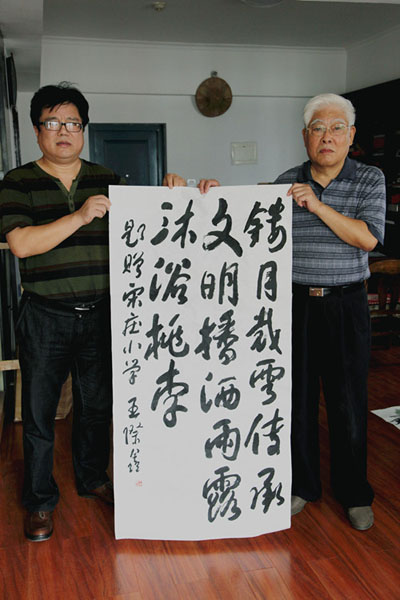 镂月裁雲传承
文明播洒雨露
沐浴桃李
题赠宋庄小学 王